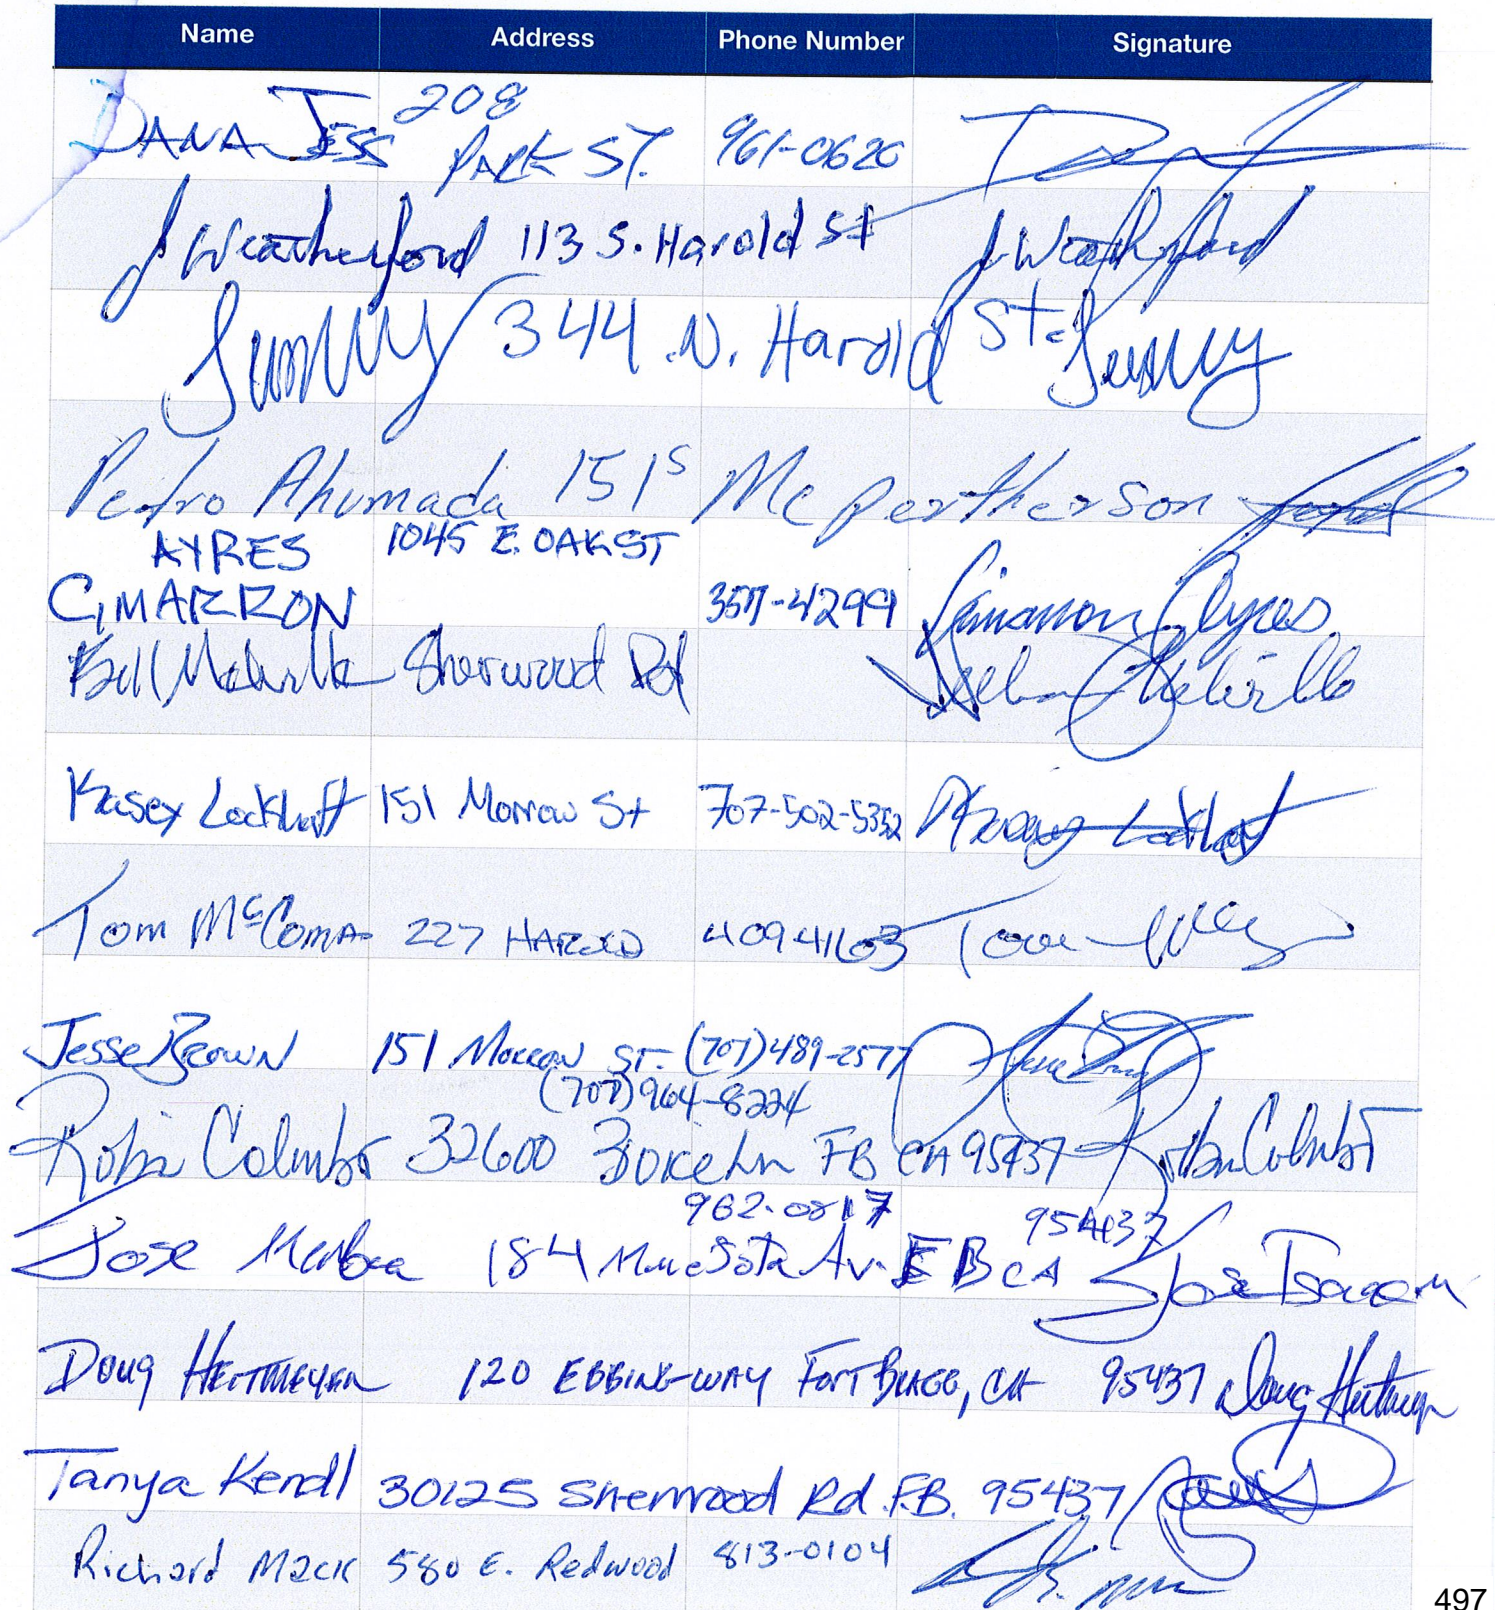 Name Address Phone Number Signature
DANA JESS 208 PARK ST. 961-0620
J Weatherford 113 S. Harold St J Weatherford
344 N. Harold St.
Pedro Ahumada 151 S McPertherson
AYRES 1045 E. OAK ST
CIMARRON 357-4299 Cimarron Ayres
Bill Melville Sherwood Rd Melville
Kasey Lockhart 151 Morrow St 707-502-5352 Kasey Lockhart
Tom McComas 227 HAROLD 4094163 Tom
Jesse Brown 151 Morrow ST. (707)489-2577
(707)964-8224
Robin Colombo 32600 Boice Ln FB CA 95437 Robin Colombo
962-0817 95437
Jose 184 Av. F B CA Jose
Doug HEITMEYER 120 EBBING WAY FORT BRAGG, CA 95437 Doug Heitmeyer
Tanya Kendl 30125 Sherwood Rd. F.B. 95437
Richard Mack 580 E. Redwood 813-0104
497